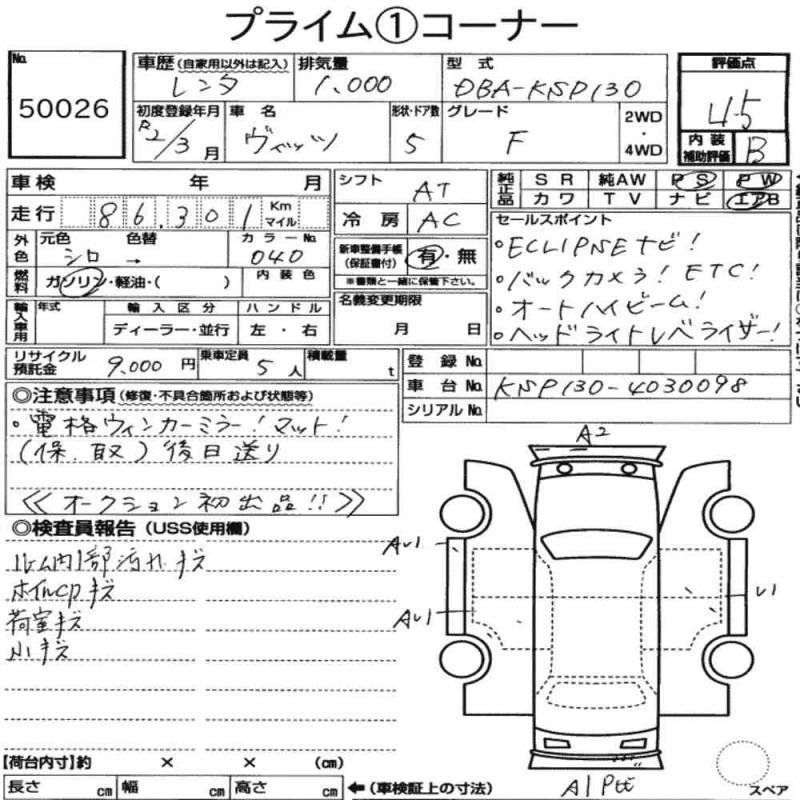 プライム①コーナー
No. 50026
車歴 (自家用以外は記入) レンタ
排気量 1,000
型式 DBA-KSP130
評価点 4.5
初度登録年月 R2/3月
車名 ヴィッツ
形状・ドア数 5
グレード F
2WD・4WD
内装補助評価 B
車検 年 月
走行 86,301 Km マイル
シフト AT
冷房 AC
純正品 SR 純AW PS PW
カワ TV ナビ エアB
外色 元色 シロ 色替 → カラーNo. 040
燃料 ガソリン・軽油・( ) 内装色
新車整備手帳(保証書付) 有・無
※書類と一緒に保管下さい。
セールスポイント
・ECLIPSEナビ!
・バックカメラ! ETC!
・オートハイビーム!
・ヘッドライトレベライザー!
輸入車用 年式 輸入区分 ハンドル
ディーラー・並行 左・右
名義変更期限 月 日
リサイクル預託金 9,000円 乗車定員 5人 積載量 t
登録No.
車台No. KSP130-4030098
シリアルNo.
◎注意事項 (修復・不具合箇所および状態等)
・電格ウィンカーミラー! マット!
(保、取) 後日送り
≪オークション初出品!!≫
◎検査員報告 (USS使用欄)
ルーム内1部汚れ キズ
ホイルCPキズ
荷室キズ
小キズ
A2
AU1
AU1
U1
A1Pビ
スペア
【荷台内寸】約 × × (cm)
長さ cm 幅 cm 高さ cm ←(車検証上の寸法)